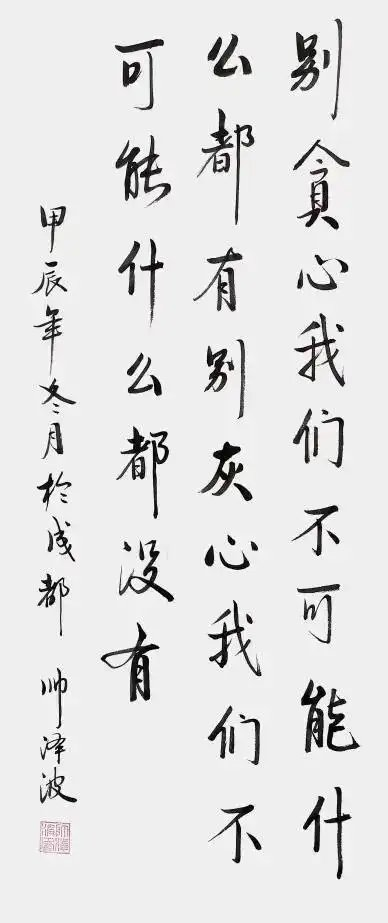 别贪心我们不可能什
么都有别灰心我们不
可能什么都没有
甲辰年冬月於成都 帅泽波